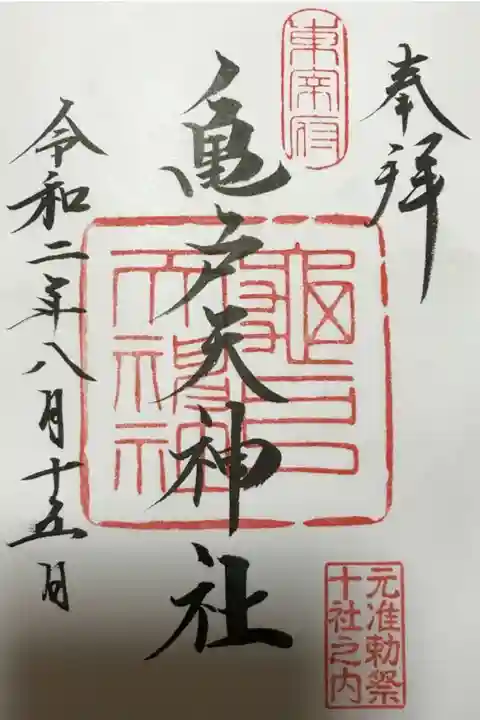 奉拝
東宰府
亀戸天神社
亀戸天神社
令和二年八月十五日
元准勅祭
十社之内